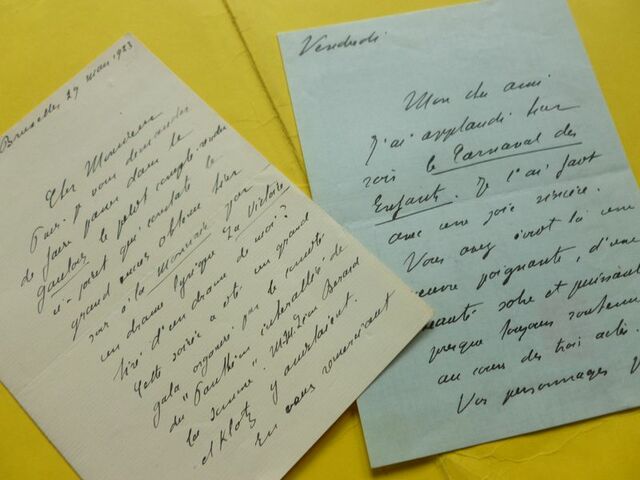 Bruxelles 29 mars 1923
Cher Monsieur
Puis-je vous demander
de faire passer dans le
gaulois le petit compte-rendu
ci-joint qui constate le
grand succès obtenu hier
soir à la Monnaie par
un drame lyrique La Victoire
tiré d'un drame de moi?
Cette soirée a été un grand
gala organisé par le comité
du "Panthéon interallié" de
la Somme. M.M. Léon Bérard
et Klotz y assistaient.
En vous remerciant
Vendredi
Mon cher ami
J'ai applaudi hier
soir le Carnaval des
Enfants. Je l'ai fait
avec une joie sincère.
Vous avez écrit là une
œuvre poignante, d'une
beauté sobre et puissante
presque toujours soutenue
au cours des trois actes.
Vos personnages